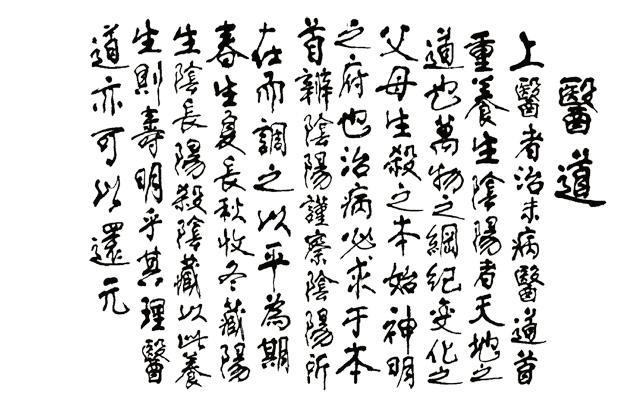 醫道
上醫者治未病醫道首
重養生陰陽者天地之
道也萬物之綱紀变化之
父母生殺之本始神明
之府也治病必求于本
首辨陰陽謹察陰陽所
在而調之以平為期
春生夏長秋收冬藏陽
生陰長陽殺陰藏以此養
生則壽明乎其理醫
道亦可以還元